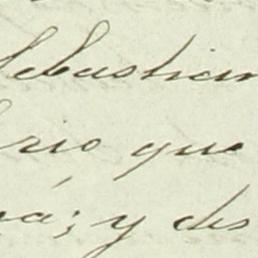 Sebastian
rio que
rá; y des